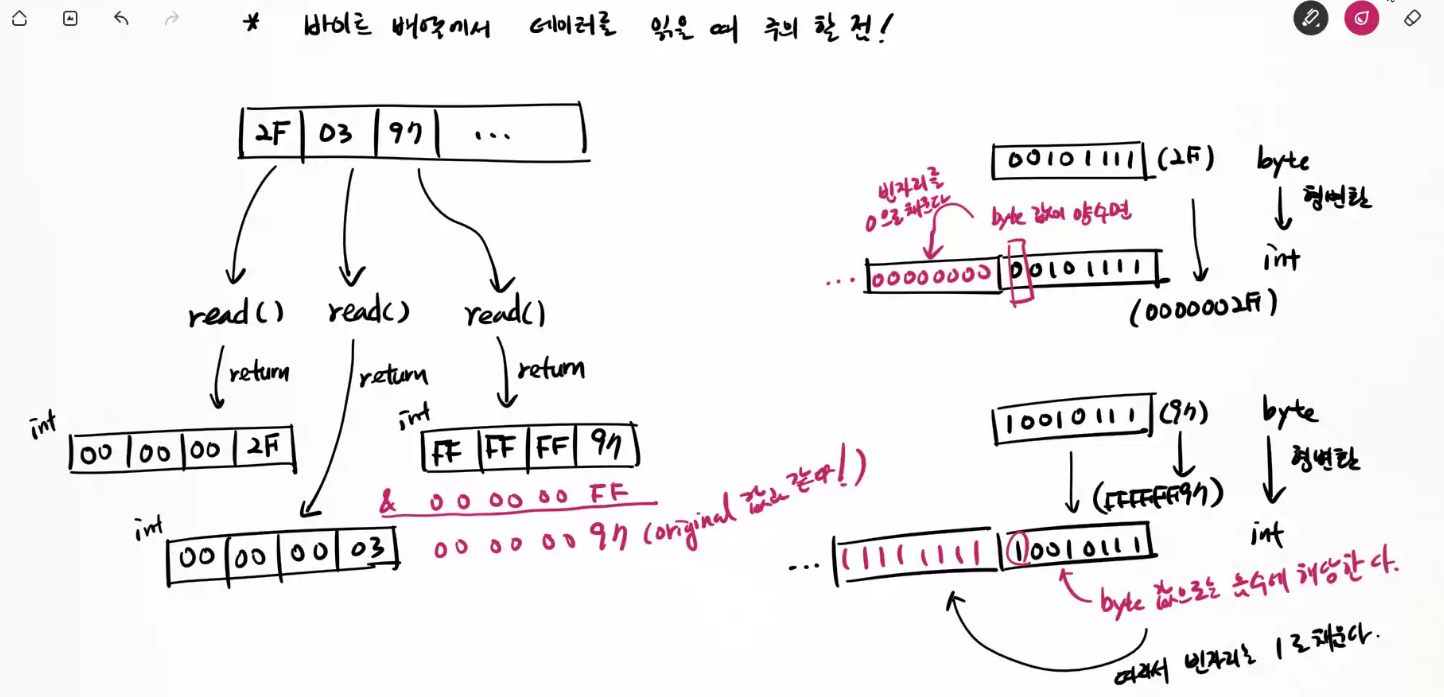 * 바이트 배열에서 데이터를 읽을 때 주의 할 점!
2F 03 97 ...
read() read() read()
return return return
int
00 00 00 2F
int
FF FF FF 97
& 00 00 00 FF
00 00 00 97 (original 값과 같다!)
int
00 00 00 03
00101111 (2F) byte
형변환
빈자리를
0으로 채운다
byte 값이 양수면
... 00000000 00101111 int
(0000002F)
10010111 (97) byte
형변환
(FFFFFF97)
... 11111111 10010111 int
byte 값으로는 음수에 해당한다.
따라서 빈자리는 1로 채운다.